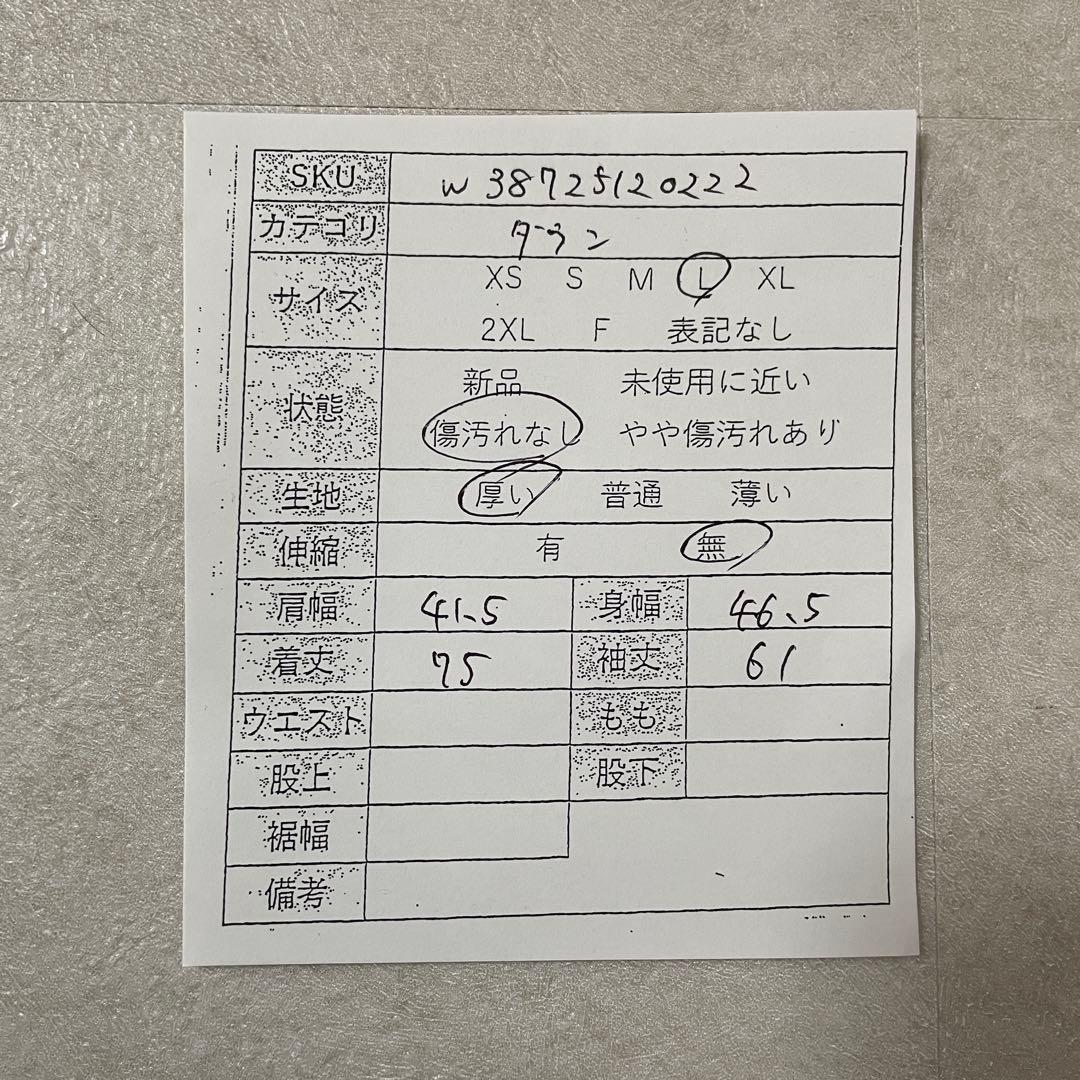 SKU w38725120222
カテゴリ ダウン
サイズ XS S M L XL
2XL F 表記なし
状態 新品 未使用に近い
傷汚れなし やや傷汚れあり
生地 厚い 普通 薄い
伸縮 有 無
肩幅 41.5 身幅 46.5
着丈 75 袖丈 61
ウエスト もも
股上 股下
裾幅
備考